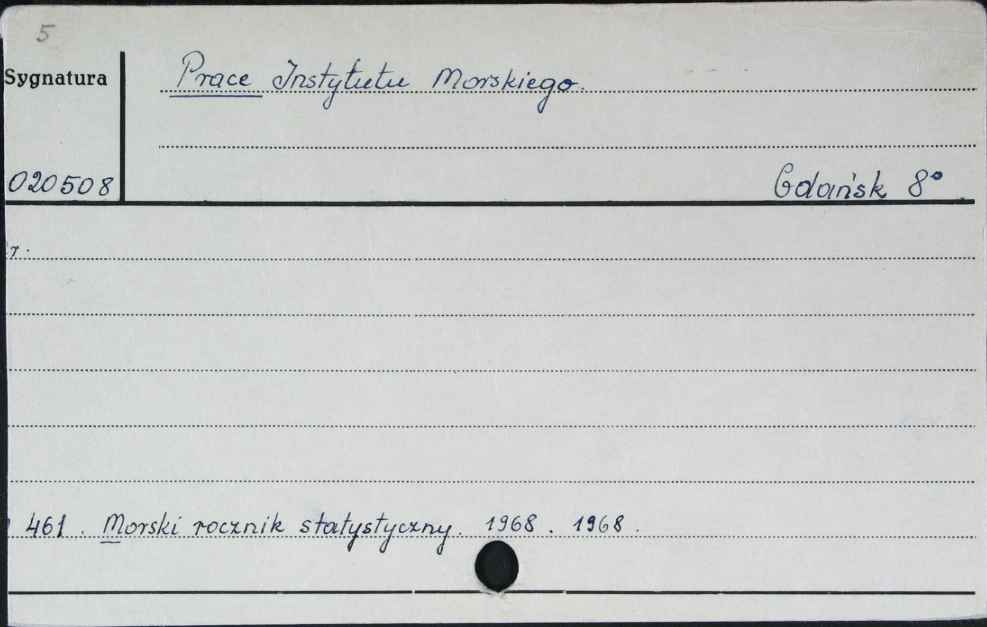 5
Sygnatura
Prace Instytutu Morskiego.
020508
Gdańsk 8°
7.
461. Morski rocznik statystyczny. 1968. 1968.